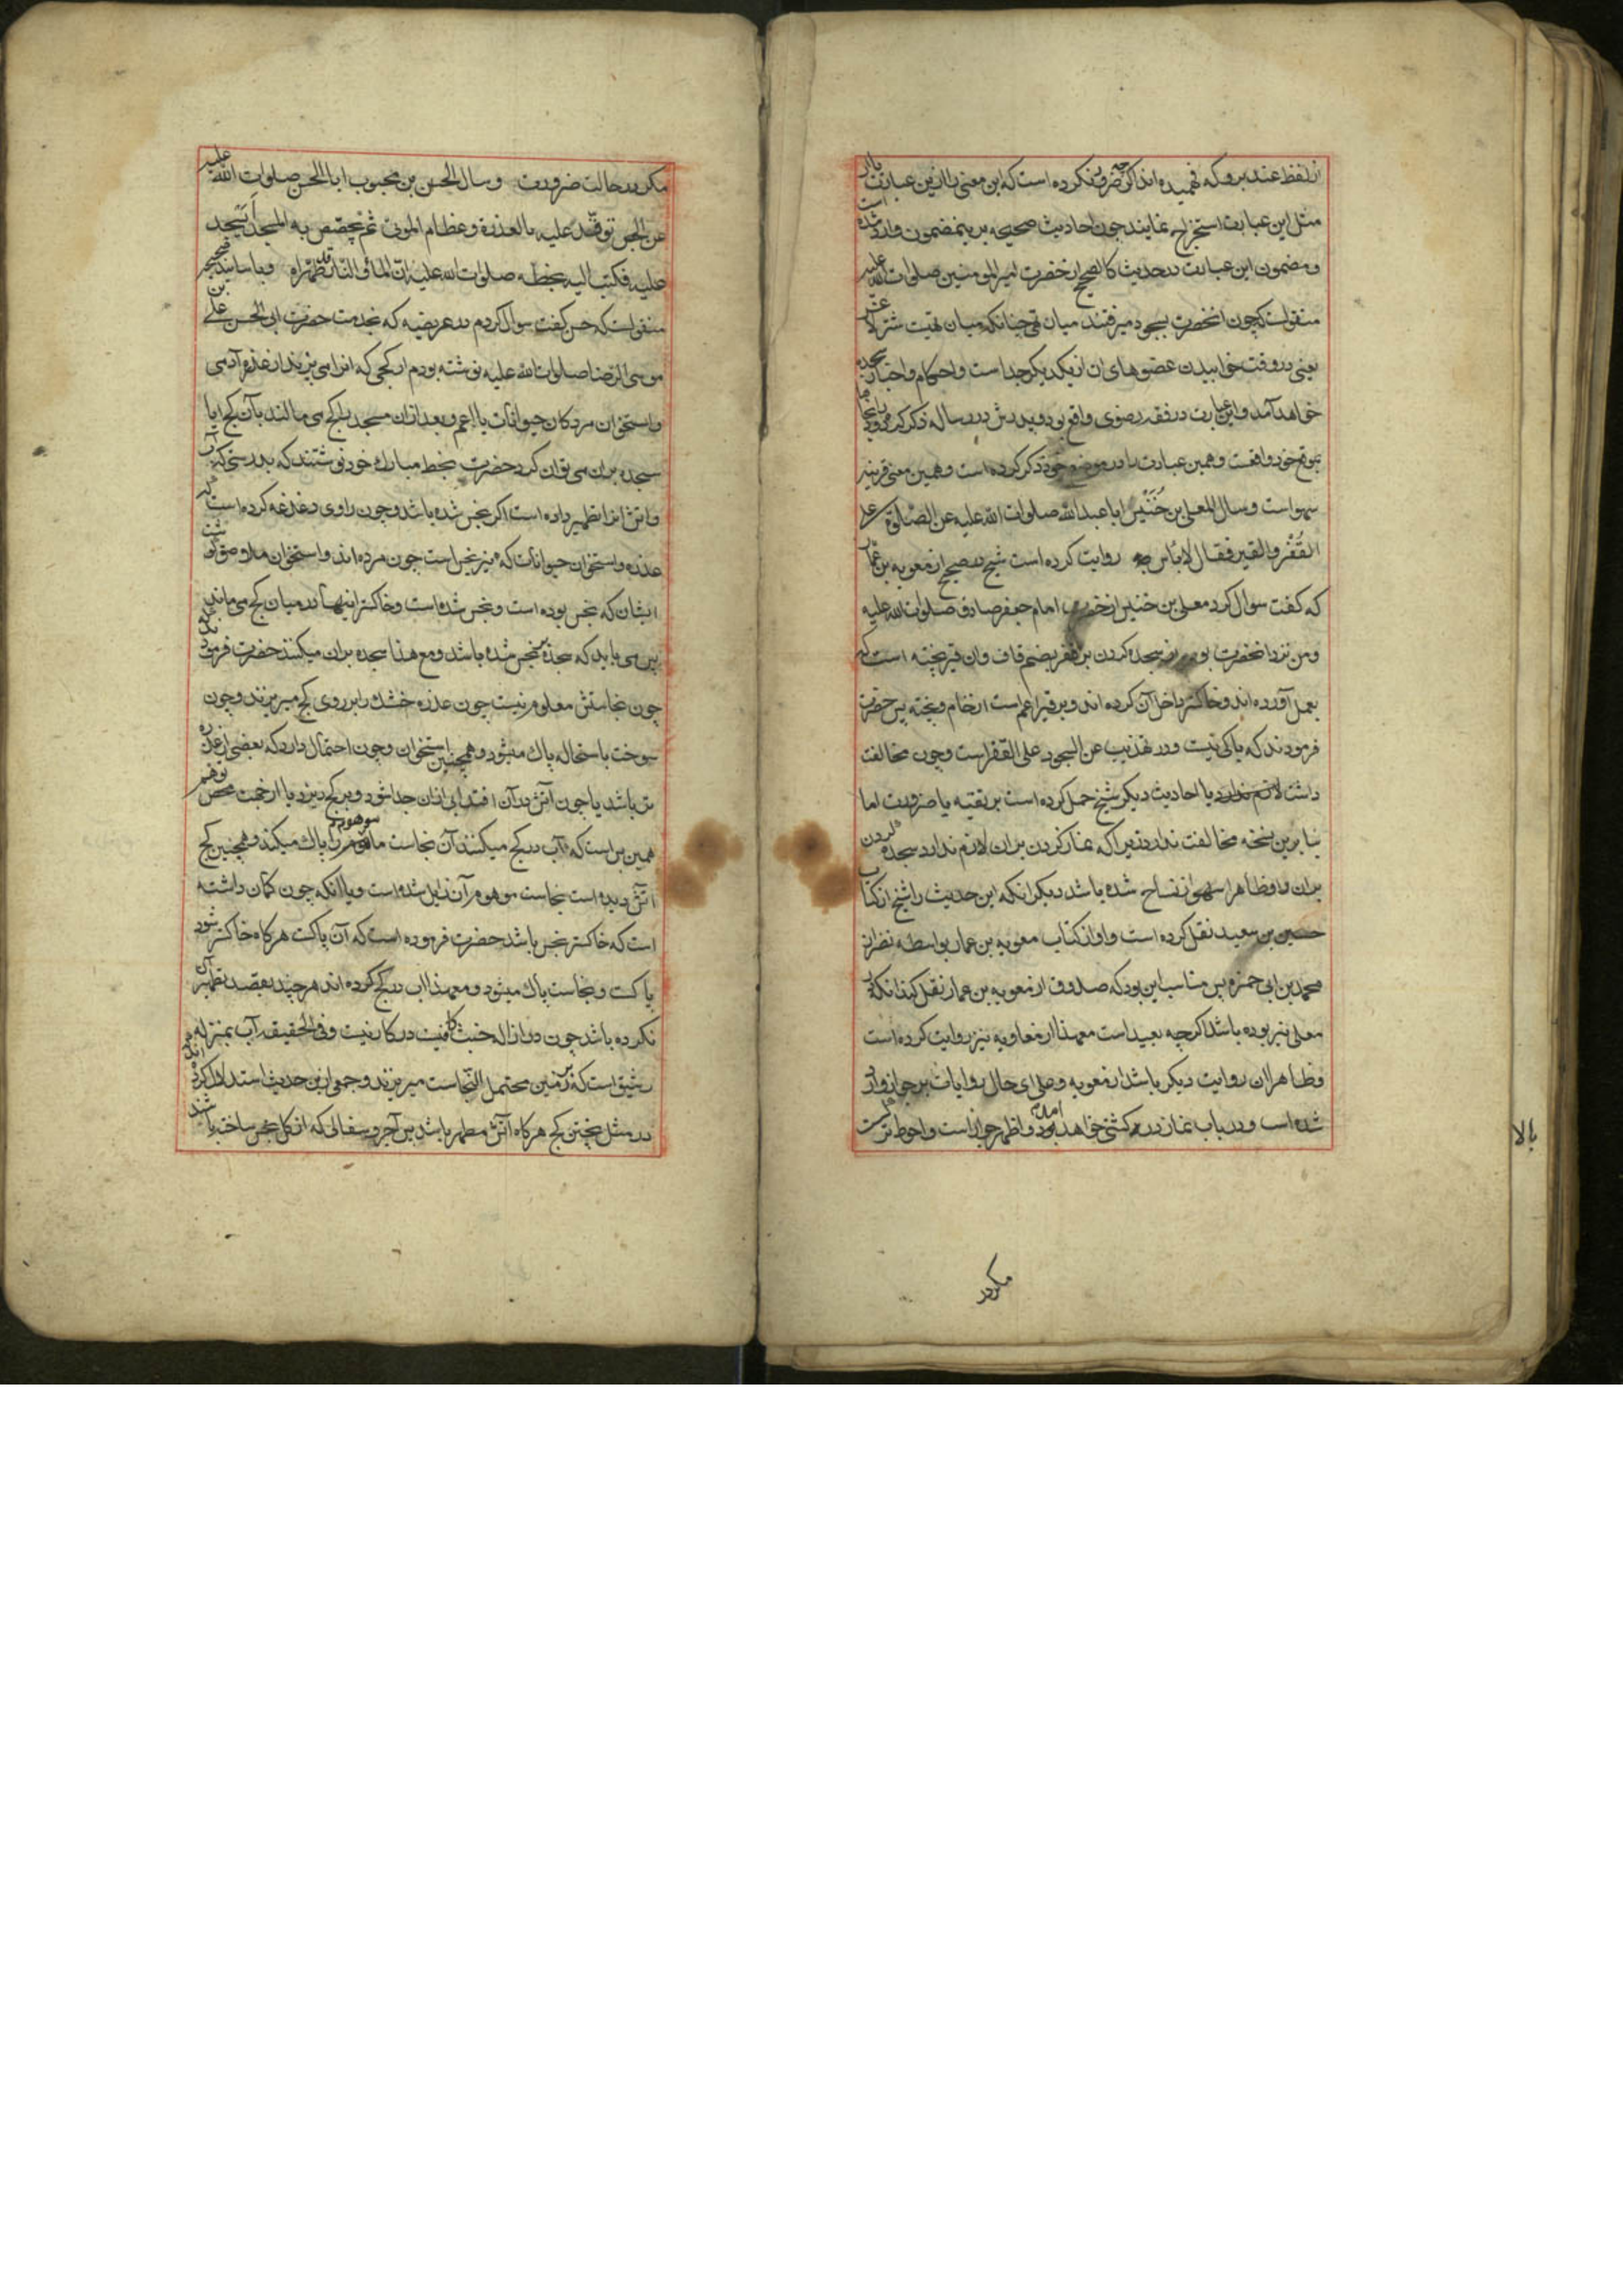 از لفظ عند بروکه فهمیده اند اکرچه ضرور نکرده است که این معنی را از این عبارت یا از
مثل این عبارت استخراج نمایند چون احادیث صحیحه برینمضمون وارد شده است
و مضمون این عبارت در حدیث کالصحیح از حضرت امیر المومنین صلوات الله علیه
منقولست که چون انحضرت بسجود میرفتند میان تهی چنانکه میان تهیت شتر لاغر
یعنی در وقت خوابیدن عضوهای ان از یکدیکر جداست و احکام و اخبار سجده
خواهد آمد و این عبارت در فقه رضوی واقع بود و پدرش در رساله ذکر کرده بود
بموقع خود واقعست و همین عبارت را در موضع خود ذکر کرده است و همین معنی قرینه
سهو است و سال المعلی بن خُنَیْس ابا عبد الله صلوات الله علیه عن الصّلوة علی
القُفْر والقیر فقال لا باس به روایت کرده است شیخ در صحیح از معویه بن عمار
که کفت سوال کرد معلی بن خنیس از حضرت امام جعفر صادق صلوات الله علیه
و من نزد انحضرت بودم از سجده کردن بر قفر بضم قاف و ان قیر پخته است که
بعمل آورده اند و خاکستر داخل آن کرده اند و بر قیر اعم است از خام و پخته پس حضرت
فرمودند که باکی نیست و در تهذیب عن السجود علی القفر است و چون مخالفت
داشت لازم ندارد با احادیث دیکر شیخ حمل کرده است بر تقیه یا ضرورت اما
بنا برین نسخه مخالفت ندارد زیرا که نماز کردن بران لازم ندارد سجده کردن
بران و ظاهرا سهو از نساخ شده باشد دیکر انکه این حدیث را شیخ از کتاب
حسین بن سعید نقل کرده است و او از کتاب معویه بن عمار بواسطه نضر از
محمد بن ابی حمزه پس مناسب این بود که صدوق از معویه بن عمار نقل کند انکه از
معلی نیز بوده باشد اکرچه بعید است معهذا از معاویه نیز روایت کرده است
و ظاهرا ان روایت دیکر باشد از معویه و علی ای حال روایات بر جواز وارد
شده است و در باب نماز در کشتی خواهد آمد و اظهر جواز است و احوط ترکست
مکر در
بالا
مکر در حالت ضرورت و سال الحسن بن محبوب ابا الحسن صلوات الله علیه
عن الجص توقد علیه بالعذرة و عظام الموتی ثم یجصّص به المسجد أیسجد
علیه فکتب الیه بخطه صلوات الله علیه ان الماء و النار قد طهّراه و باسانید صحیحه
منقولست که حسن کفت سوال کردم در عریضه که بخدمت حضرت ابی الحسن علی بن
موسی الرضا صلوات الله علیه نوشته بودم از کچی که انرا می پزند از عذره آدمی
و استخوان مردکان حیوانات یا اعم و بعد ازان مسجد را کچ می مالند بآن کچ ایا
سجده بران می توان کرد حضرت بخط مبارک خود نوشتند که بدرستی که آب
و آتش انرا تطهیر داده است اکر نجس شده باشد و چون راوی دغدغه کرده است که
عذره و استخوان حیوانات که نیز نجس است چون مرده اند و استخوان ملاصق کوشت
ایشان که نجس بوده است و نجس شده است و خاکستر اینها در میان کچ می ماند
پس می باید که سجده بر نجس شده باشد و مع هذا سجده بران میکنند حضرت فرمود
چون نجاستش معلوم نیست چون عذره خشک را بر روی کچ میریزند و چون
سوخت باستحاله پاک میشود و همچنین استخوان و چون احتمال دارد که بعضی از عذره
تر باشد یا چون آتش در آن افتد ابی ازان جدا شود و بر کچ ریزد یا از جهت محض توهم
همین بس است که آب در کچ میکنند آن نجاست موهوم را پاک میکند و همچنین کچ
آتش دیده است نجاست موهوم آن زایل شده است و یا انکه چون کمان داشته
است که خاکستر نجس باشد حضرت فرموده است که آن پاکست هرکاه خاکستر شود
پاکست و نجاست پاک میشود و معهذا اب در کچ کرده اند هر چند بقصد تطهیر آن
نکرده باشد چون در ازاله خبث نیت در کار نیست و فی الحقیقه آب بمنزله
رشیق است که بر زمین محتمل النجاست میریزند و جمعی ازین حدیث استدلال کرده اند
در مثل پختن کچ هرکاه آتش مطهر باشد پس آجر و سفالی که از کل نجس ساخته باشند